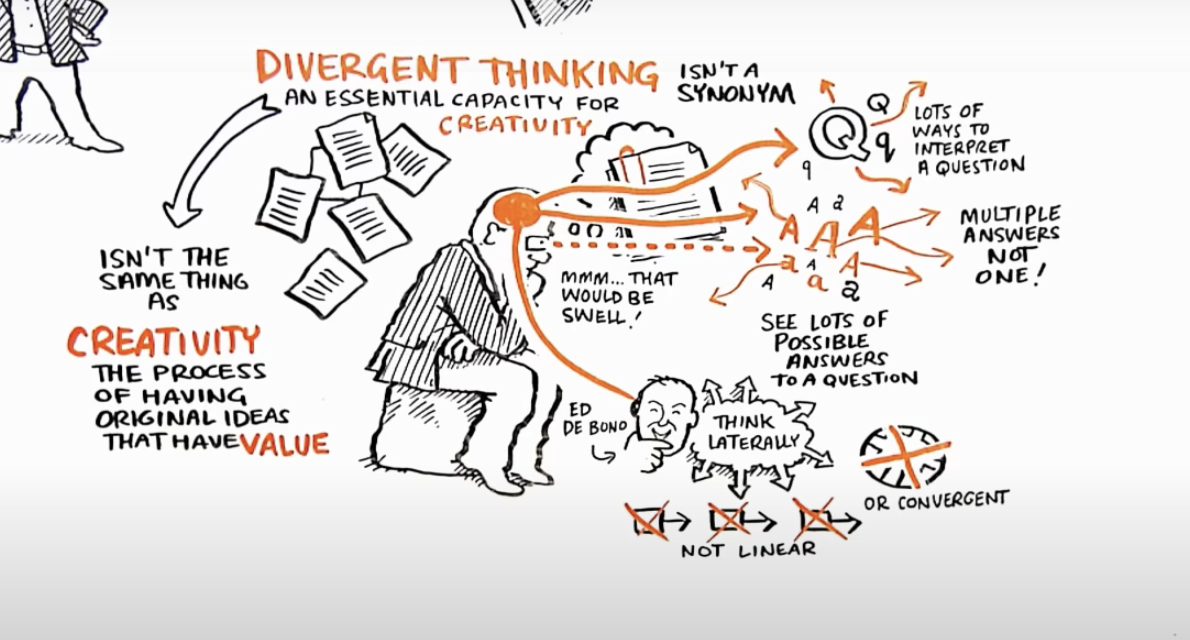 DIVERGENT THINKING
AN ESSENTIAL CAPACITY FOR
CREATIVITY
ISN'T A
SYNONYM
ISN'T THE
SAME THING
AS
CREATIVITY
THE PROCESS
OF HAVING
ORIGINAL IDEAS
THAT HAVE VALUE
MMM... THAT
WOULD BE
SWELL!
Q Q
q
q
LOTS OF
WAYS TO
INTERPRET
A QUESTION
A a
A A A
a A A
A a a
MULTIPLE
ANSWERS
NOT
ONE!
SEE LOTS OF
POSSIBLE
ANSWERS
TO A QUESTION
ED
DE BONO
THINK
LATERALLY
NOT LINEAR
OR CONVERGENT